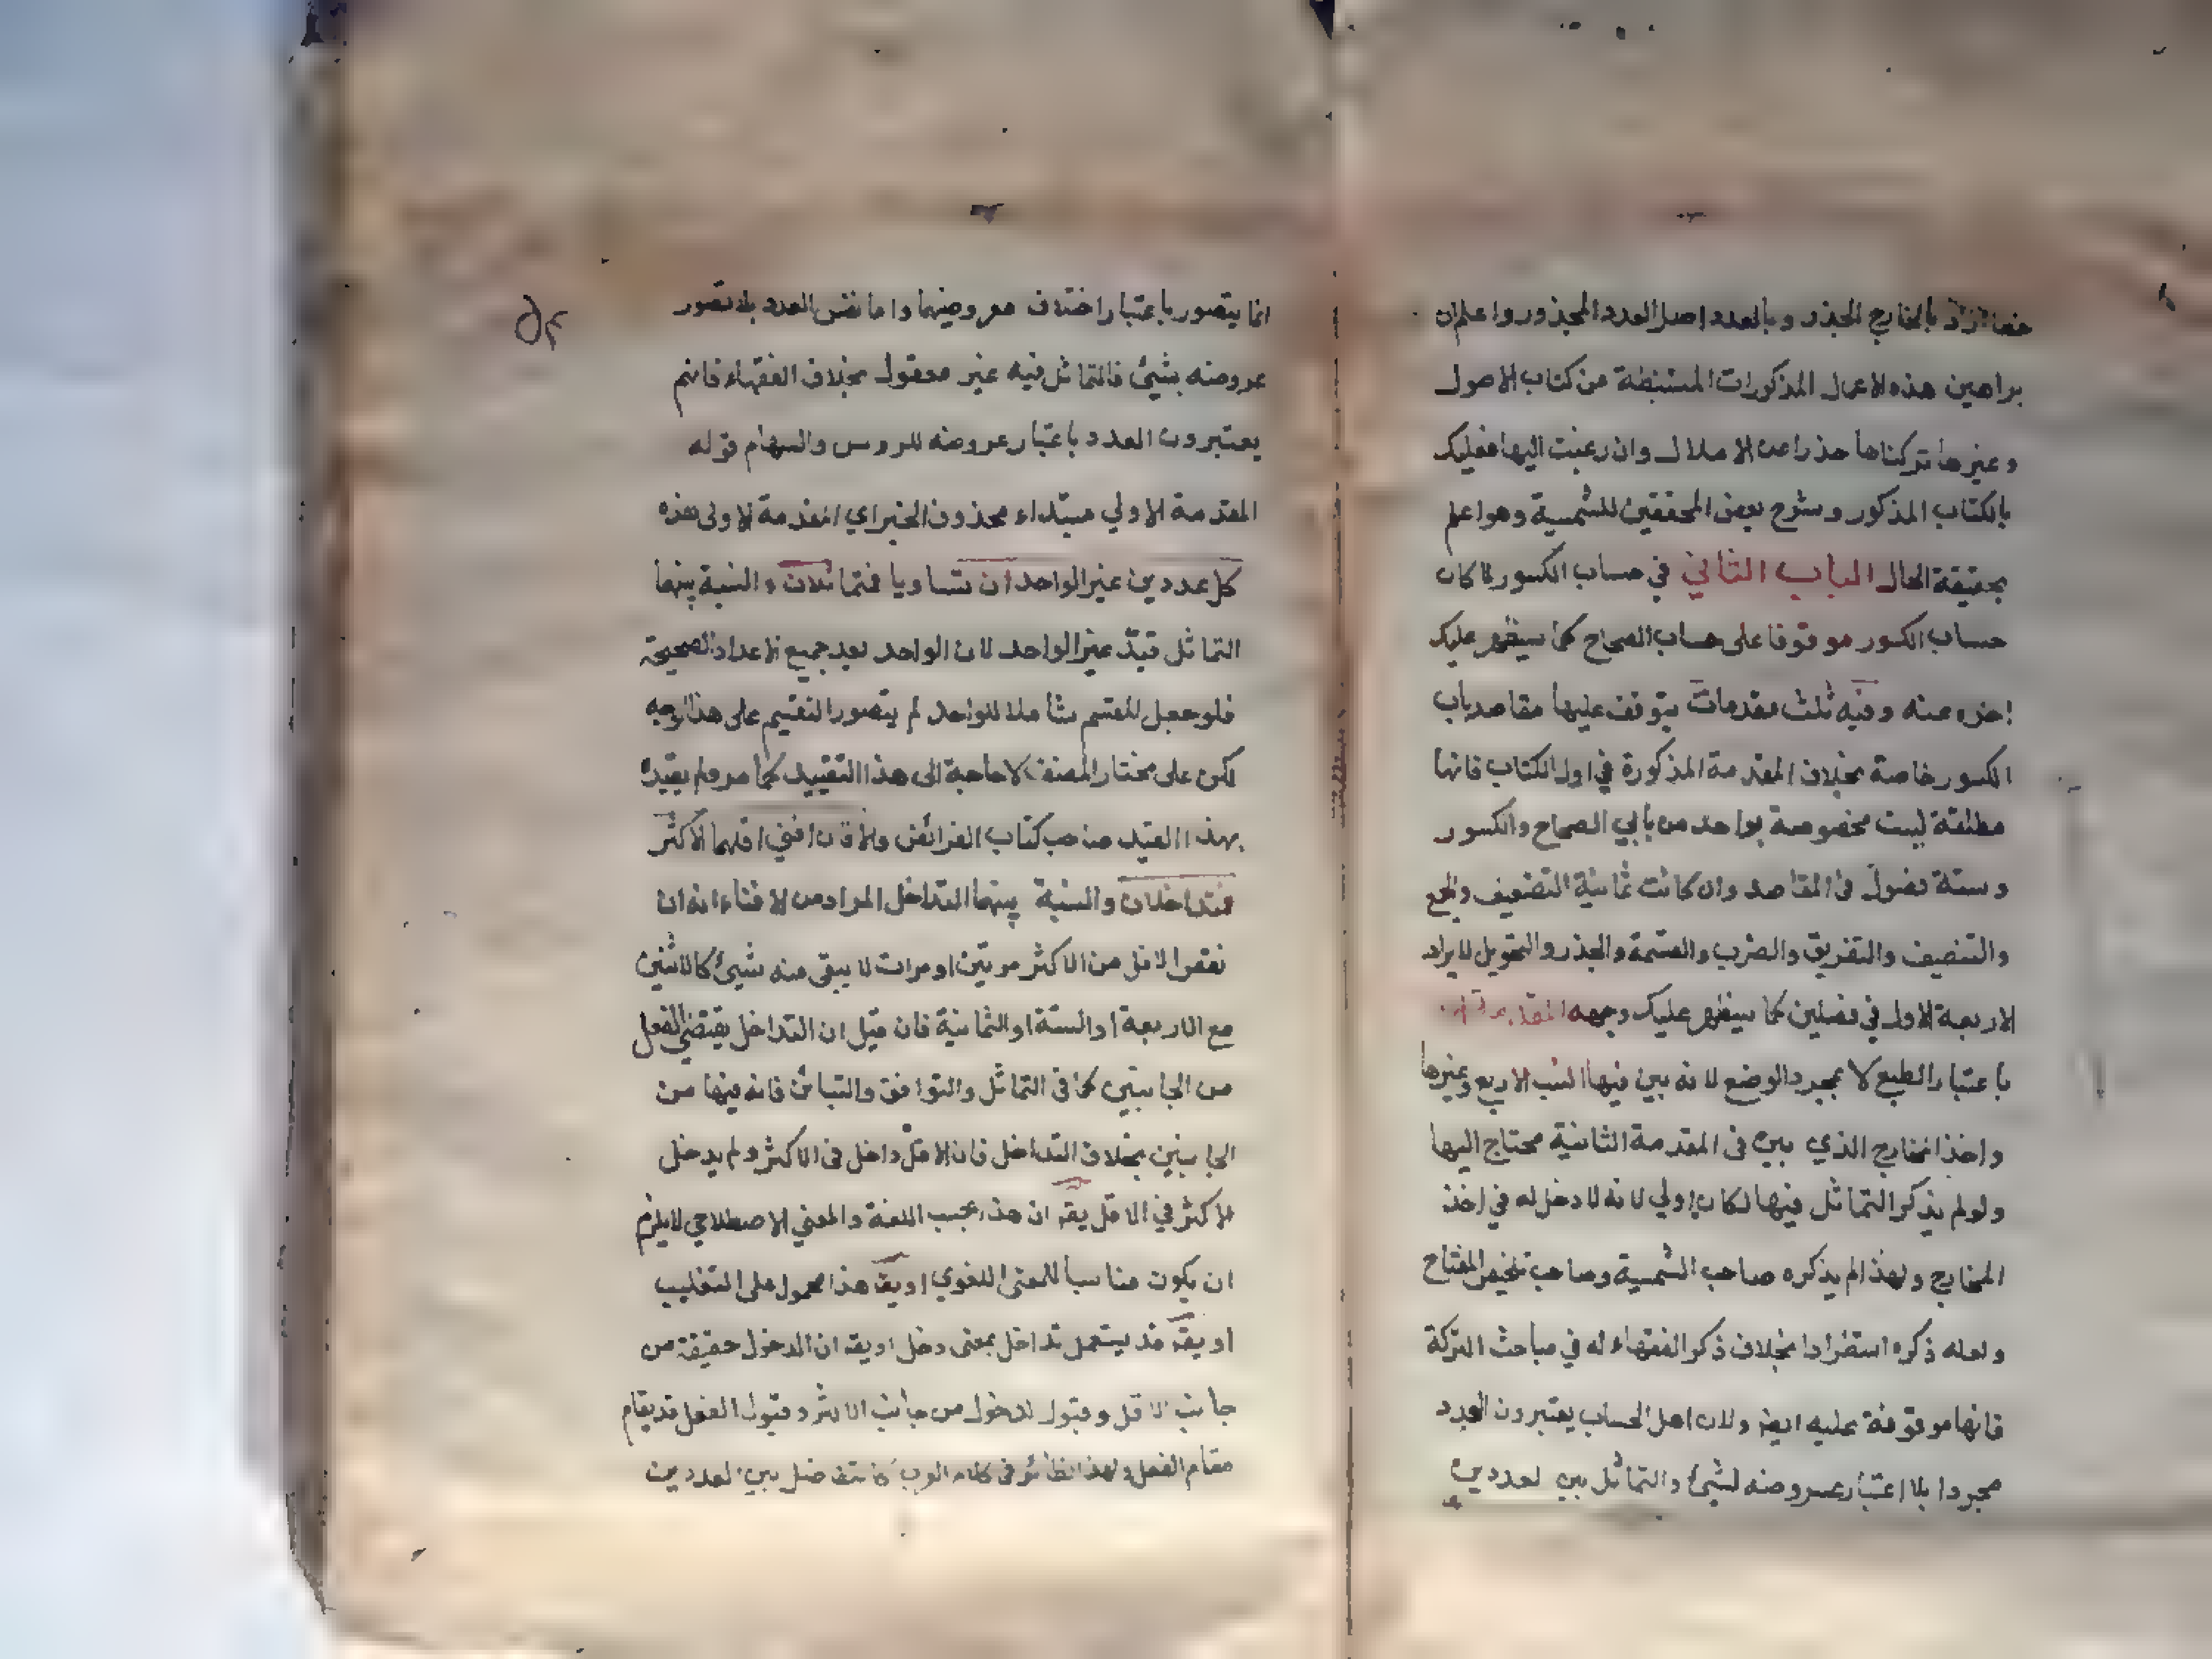 بالخارج الجذر وبالعدد اصل العدد المجذور واعلم ان
براهين هذه الاعمال المذكورات المستنبطة من كتاب الاصول
وغيرها تركناها حذرا عن الاملال وان رغبت اليها فعليك
بالكتاب المذكور وشرح بعض المحققين للشمسية وهو اعلم
بحقيقة الحال الباب الثاني في حساب الكسور لما كان
حساب الكسور موقوفا على حساب الصحاح كما سيظهر عليك
اخره عنه وفيه ثلث مقدمات يتوقف عليها مقاصد باب
الكسور خاصة بخلاف المقدمة المذكورة في اول الكتاب فانها
مطلقة ليست مخصوصة بواحد من بابي الصحاح والكسور
وستة فصول في المقاصد وان كانت ثمانية التضعيف والجمع
والتنصيف والتفريق والضرب والقسمة والجذر والتحويل لايراد
الاربعة الاول في فصلين كما سيظهر عليك وجهه
باعتبار الطبع لا بمجرد الوضع لانه بين فيها النسب الاربع وغيرها
واخذ المخارج الذي بين في المقدمة الثانية محتاج اليها
ولو لم يذكر التماثل فيها لكان اولي لانه لا دخل له في اخذ
المخارج ولهذا لم يذكره صاحب الشمسية وصاحب تلخيص المفتاح
ولعله ذكره استطرادا بخلاف ذكر الفقهاء له في مباحث التركة
فانها موقوفة عليه ايضا ولان اهل الحساب يعتبرون العدد
مجردا بلا اعتبار عروضه لشيئ والتماثل بين العددين
انما يتصور باعتبار اختلاف معروضيهما واما نفس العدد بلا تصور
عروضه بشيئ فالتماثل فيه غير معقول بخلاف الفقهاء فانهم
يعتبرون العدد باعتبار عروضه للروس والسهام قوله
المقدمة الاولي مبتداء محذوف الخبر اي المقدمة الاولى هذه
كل عددين غير الواحد ان تساويا فتماثلان والنسبة بينهما
التماثل قيد غير الواحد لان الواحد يعد جميع الاعداد الصحيحة
فلو جعل المقسم شاملا للواحد لم يتصور التقسيم على هذا الوجه
لكن على مختار المصنف لا حاجة الى هذا التقييد كما مر ولم يقيد
بهذا القيد صاحب كتاب الفرائض والا فان افني اقلهما الاكثر
فتداخلان والنسبة بينهما التداخل المراد من الافناء انه ان
نقص الاقل من الاكثر مرتين او مرات لا يبقى منه شيئ كالاثنين
مع الاربعة او الستة او الثمانية فان قيل ان التداخل يقتضي الفعل
من الجانبين كما في التماثل والتوافق والتباين فانه فيها من
الجانبين بخلاف التداخل فان الاقل داخل في الاكثر ولم يدخل
الاكثر في الاقل يقه ان هذا بحسب اللغة والمعني الاصطلاحي لا يلزم
ان يكون مناسبا للمعنى اللغوي او يقه هذا محمول على التغليب
او يقه قد يستعمل تداخل بمعنى دخل او يقه ان الدخول حقيقة من
جانب الاقل وقبول الدخول من جانب الاكثر وقبول الفعل قد يقام
مقام الفعل ولهذا نظائر في كلام العرب كالتفاضل بين العددين